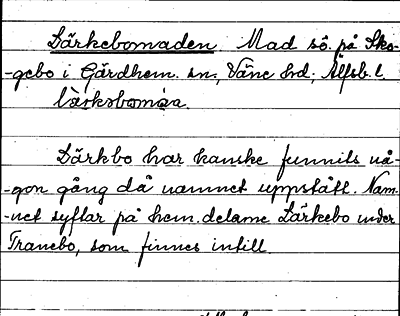 Lärkebomaden Mad sö. på Sko-
-gebo i Gärdhem. sn., Väne hd., Älfsb. l.
lärkəbomàa.
Lärkbo har kanske funnits nå-
-gon gång då namnet uppstått. Nam-
-net syftar på hem. delarne Lärkebo under
Tranebo, som finnes intill.